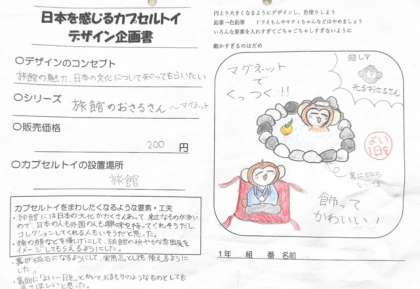 日本を感じるカプセルトイ
デザイン企画書
○デザインのコンセプト
旅館の魅力、日本の文化について知ってもらいたい
○シリーズ
旅館のおさるさん ～マグネット
○販売価格
200 円
○カプセルトイの設置場所
旅館
カプセルトイをまわしたくなるような要素・工夫
・旅館には日本の文化がたくさんあって、
ので、日本の人も外国の人も興味を持ってくれそうだし
コレクションしてくれる人もいそうだと思った。
イメージしてもらえるようにした。
・裏が磁石になるようにして、実用品としても使えるように
した。
てほしいと思った。
円より大きくなるようにデザインし、色塗りしよう
鉛筆一色鉛筆 ドラえもんやキティちゃんなどはやめましょう
いろんな要素を入れすぎてごちゃごちゃしすぎないように
細かすぎるのはだめ
マグネット
で
くっつく!!
よい
1日を
飾って
かわいい!
1年 組 番 名前